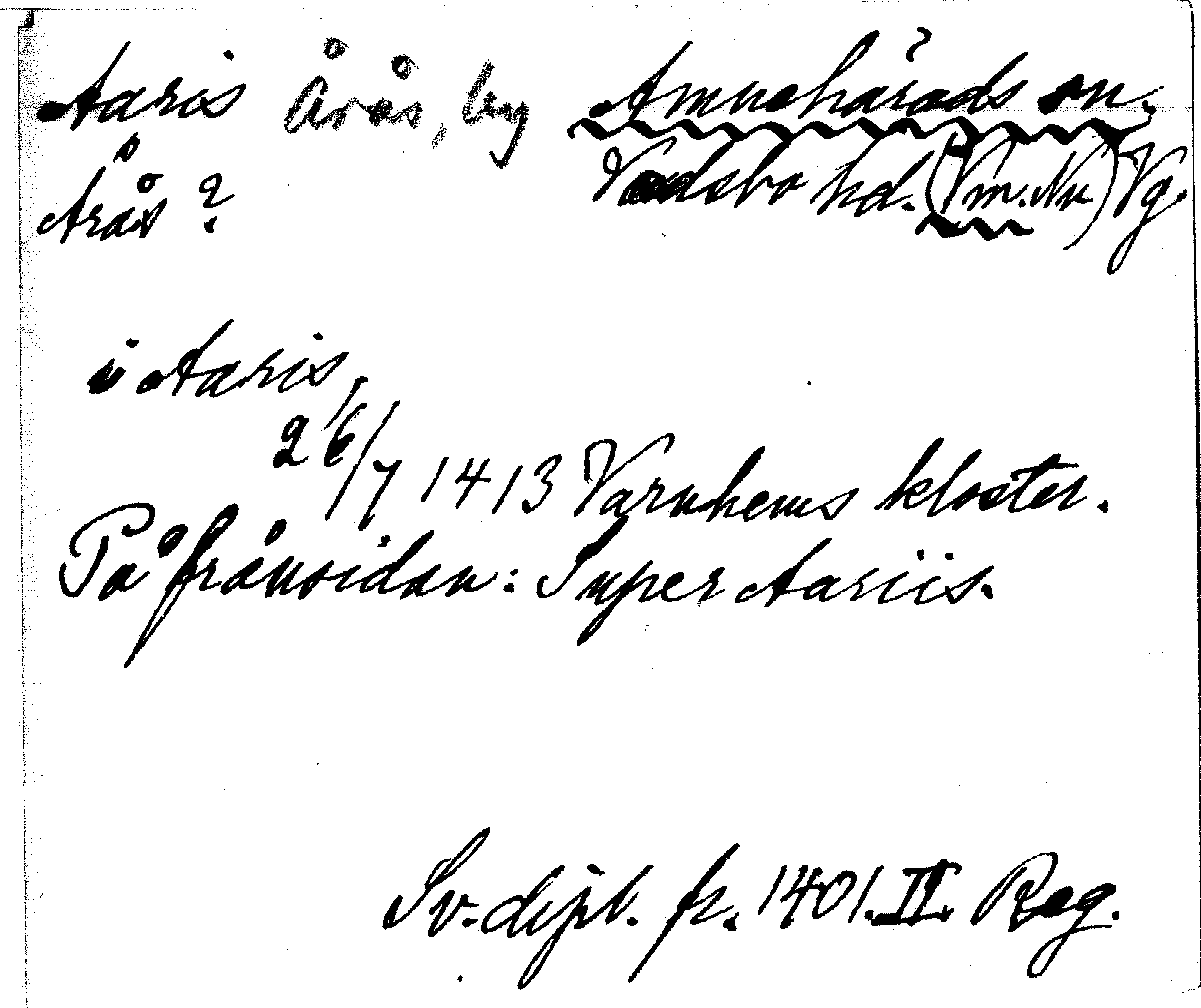 Aaris Årås, by Amnehärads sn.
Årås ? Vadsbo hd. (Vm. Nu) Vg.
i Aaris
26/7 1413 Varnhems kloster.
På frånsidan: Super Aariis.
Sv. dipl. fr. 1401. II. Reg.